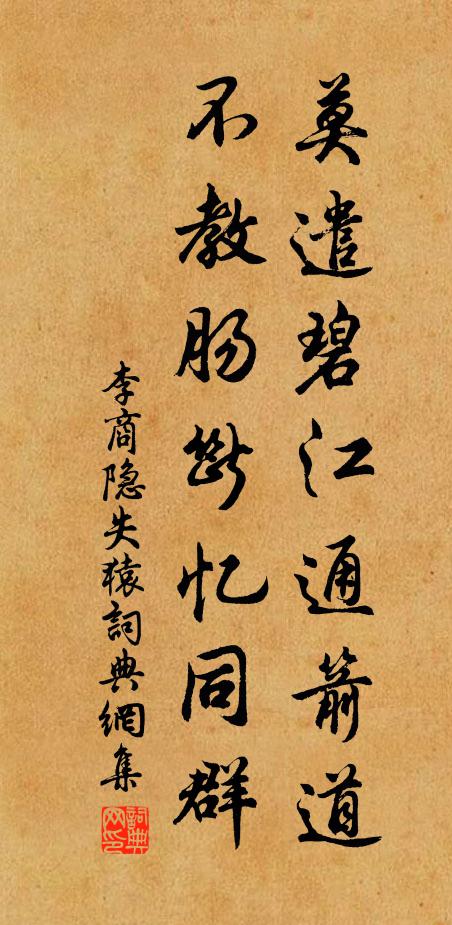 莫遣碧江通箭道
不教肠断忆同群
李商隐失猿詞典網集
詞典網印